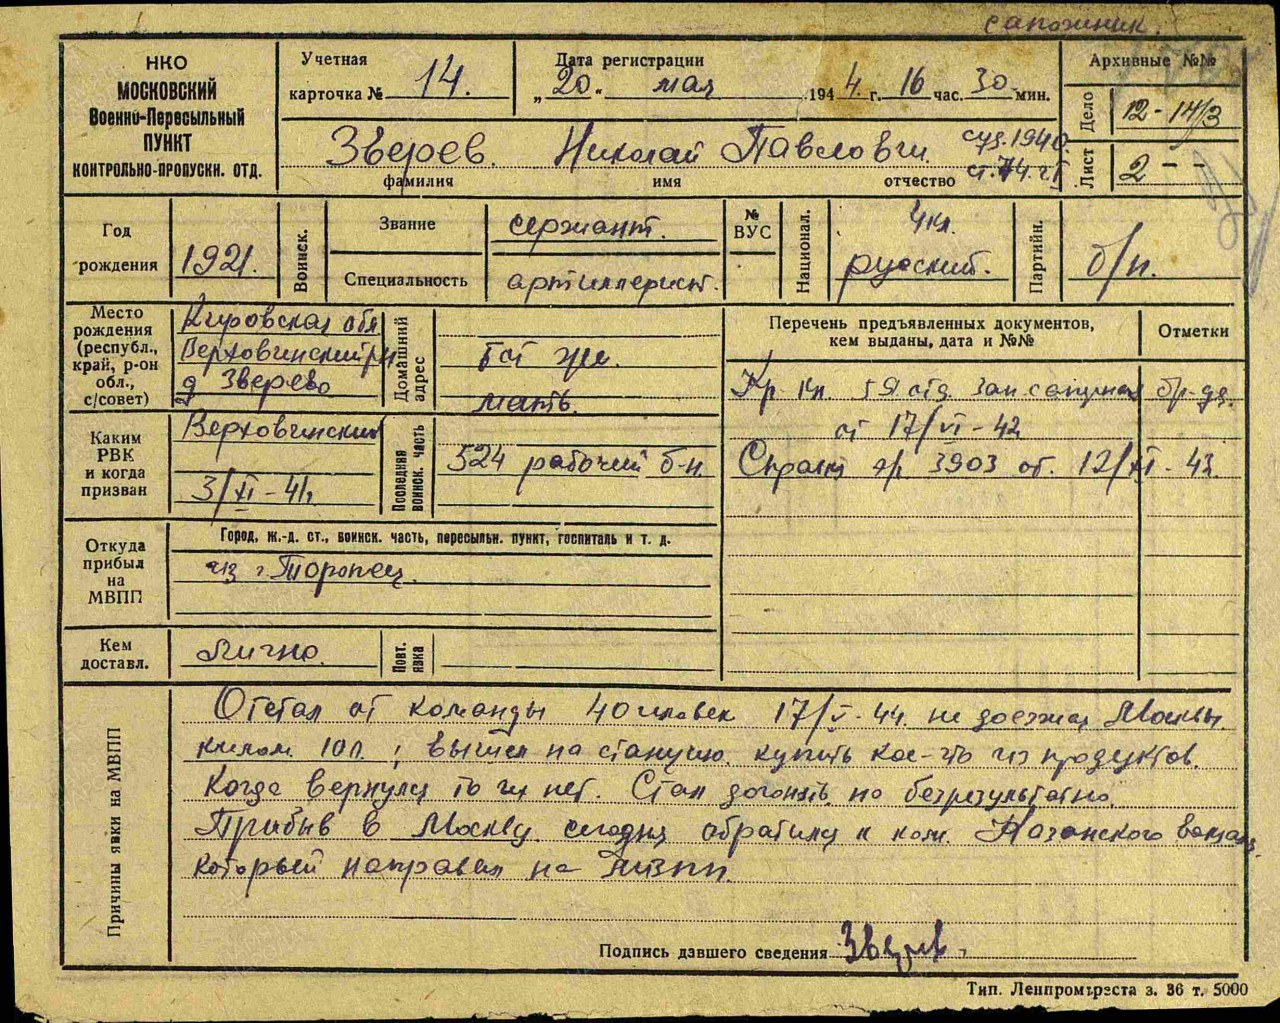 сапожник.
НКО
МОСКОВСКИЙ
Военно-Пересыльный
ПУНКТ
КОНТРОЛЬНО-ПРОПУСКН. ОТД.
Учетная
карточка № 14.
Дата регистрации
„20" мая 1944 г. 16 час. 30 мин.
Архивные №№
Дело 12-14/3
Лист 2 - -
Зверев. Николай Павлович суд. 1940
фамилия имя отчество
Год
рождения
1921.
Воинск.
Звание
сержант.
Специальность
артиллерист.
№
ВУС
Национал.
4 кл.
русский.
Партийн.
б/п.
Место
рождения
(республ.,
край, р-он
обл.,
с/совет)
Кировская обл
Верховинский рн
д Зверево
Домашний
адрес
там же.
мать.
Каким
РВК
и когда
призван
Верховинский
3/XI-41г.
Последняя
воинск. часть
524 рабочий б-н
Перечень предъявленных документов,
кем выданы, дата и №№
Отметки
Кр. кн. 59 отд. зап. саперная бр-да.
от 17/VI-42
Справка п/п 3903 от. 12/XI-43.
Откуда
прибыл
на
МВПП
Город, ж.-д. ст., воинск. часть, пересыльн. пункт, госпиталь и т. д.
из г. Торопец.
Кем
доставл.
Лично.
Повт.
явка
Причины явки на МВПП
Отстал от команды 40 человек 17/V-44. не доезжая Москвы
килом. 100. ; вышел на станцию. купить кое-что из продуктов.
Когда вернулся то их нет. Стал догонять но безрезультатно.
Прибыв в Москву сегодня обратился к ком. Казанского вокзала.
который направил на МВПП.
Подпись давшего сведения Зверев.
Тип. Ленпромтреста з. 36 т. 5000